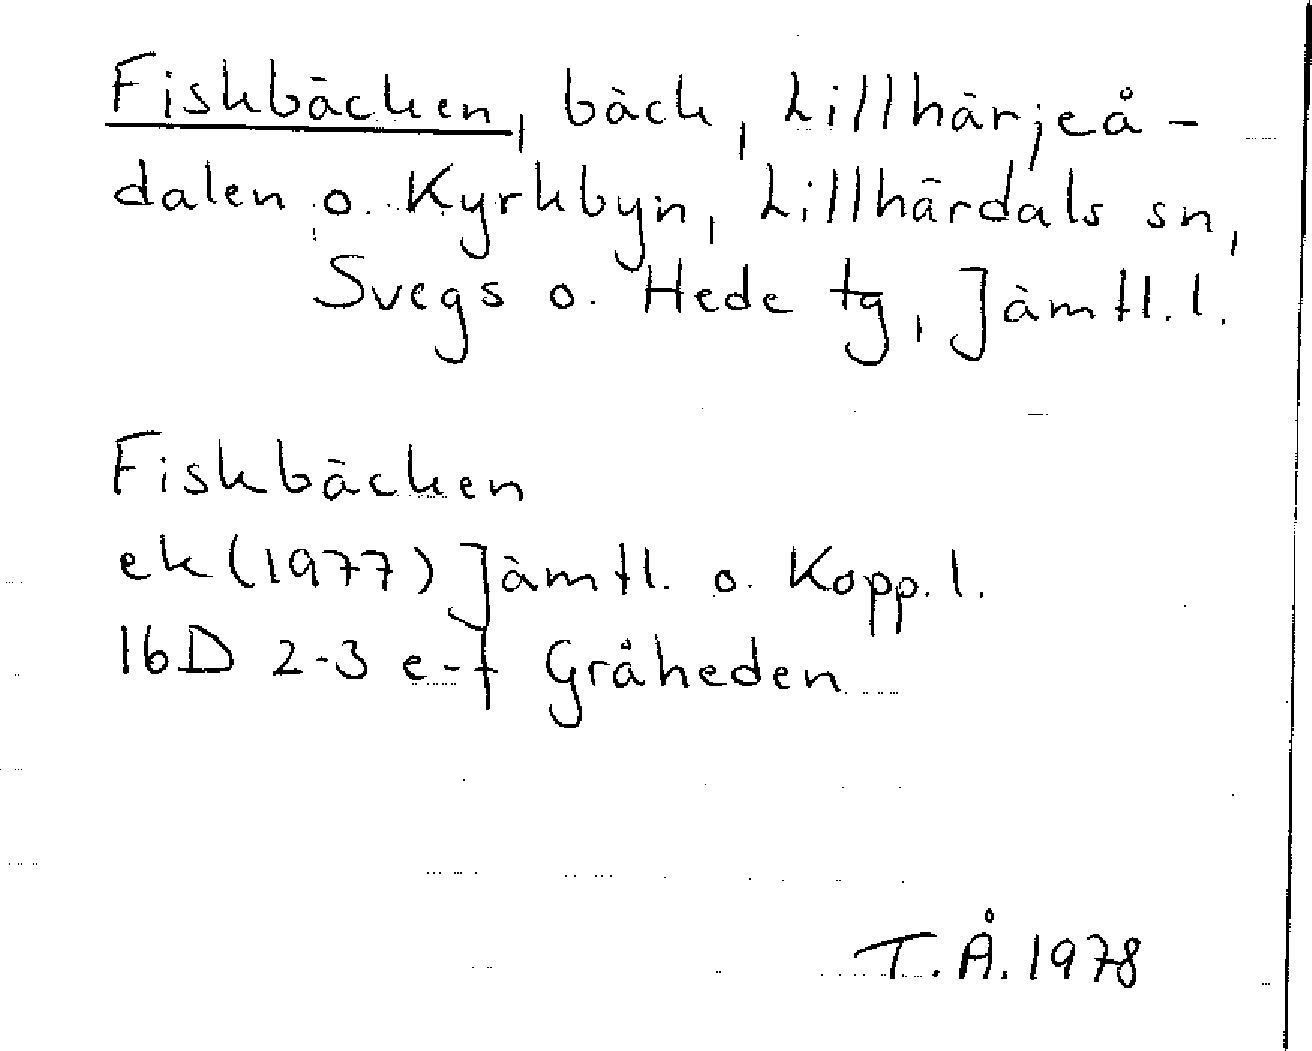 Fiskbäcken, bäck, Lillhärjeå-
dalen o. Kyrkbyn, Lillhärdals sn,
Svegs o. Hede tg, Jämtl. l.
Fiskbäcken
ek (1977) Jämtl. o. Kopp. l.
16D 2-3 e-f Gråheden
T.Å. 1978